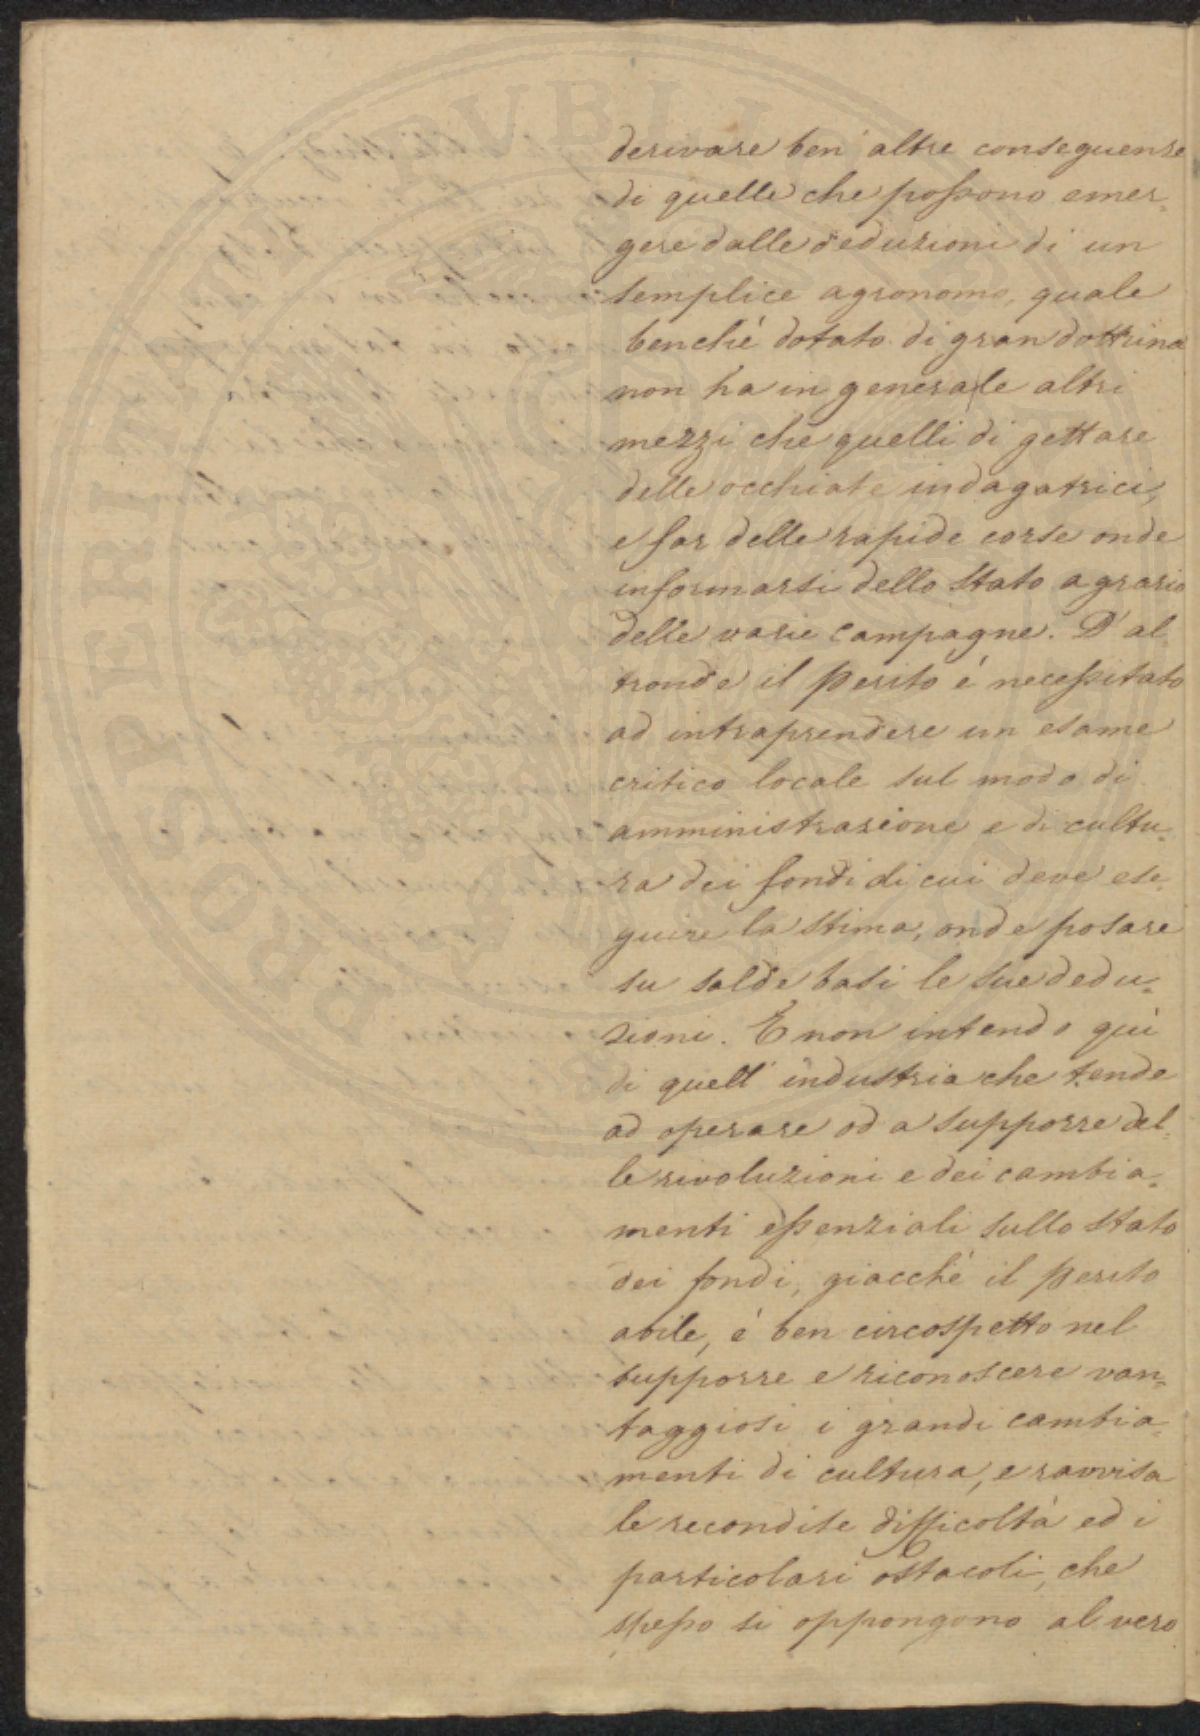 derivare ben altre conseguenze
di quelle che possono emer=
gere dalle deduzioni di un
semplice agronomo, quale
benchè dotato di gran dottrina
non ha in generale altri
mezzi che quelli di gettare
delle occhiate indagatrici,
e far delle rapide corse onde
informarsi dello stato agrario
delle varie campagne. D'al=
tronde il perito é necessitato
ad intraprendere un esame
critico locale sul modo di
amministrazione e di cultu=
ra dei fondi di cui deve ese=
guire la stima, onde posare
su salde basi le sue dedu=
zioni. E non intendo quì
di quell'industria che tende
ad operare od a supporre del=
le rivoluzioni e dei cambia=
menti essenziali sullo stato
dei fondi, giacchè il perito
abile, é ben circospetto nel
supporre e riconoscere van=
taggiosi i grandi cambia=
menti di cultura, e ravvisa
le recondite difficoltà ed i
particolari ostacoli, che
spesso si oppongono al vero
PROSPERITATI PUBLICAE